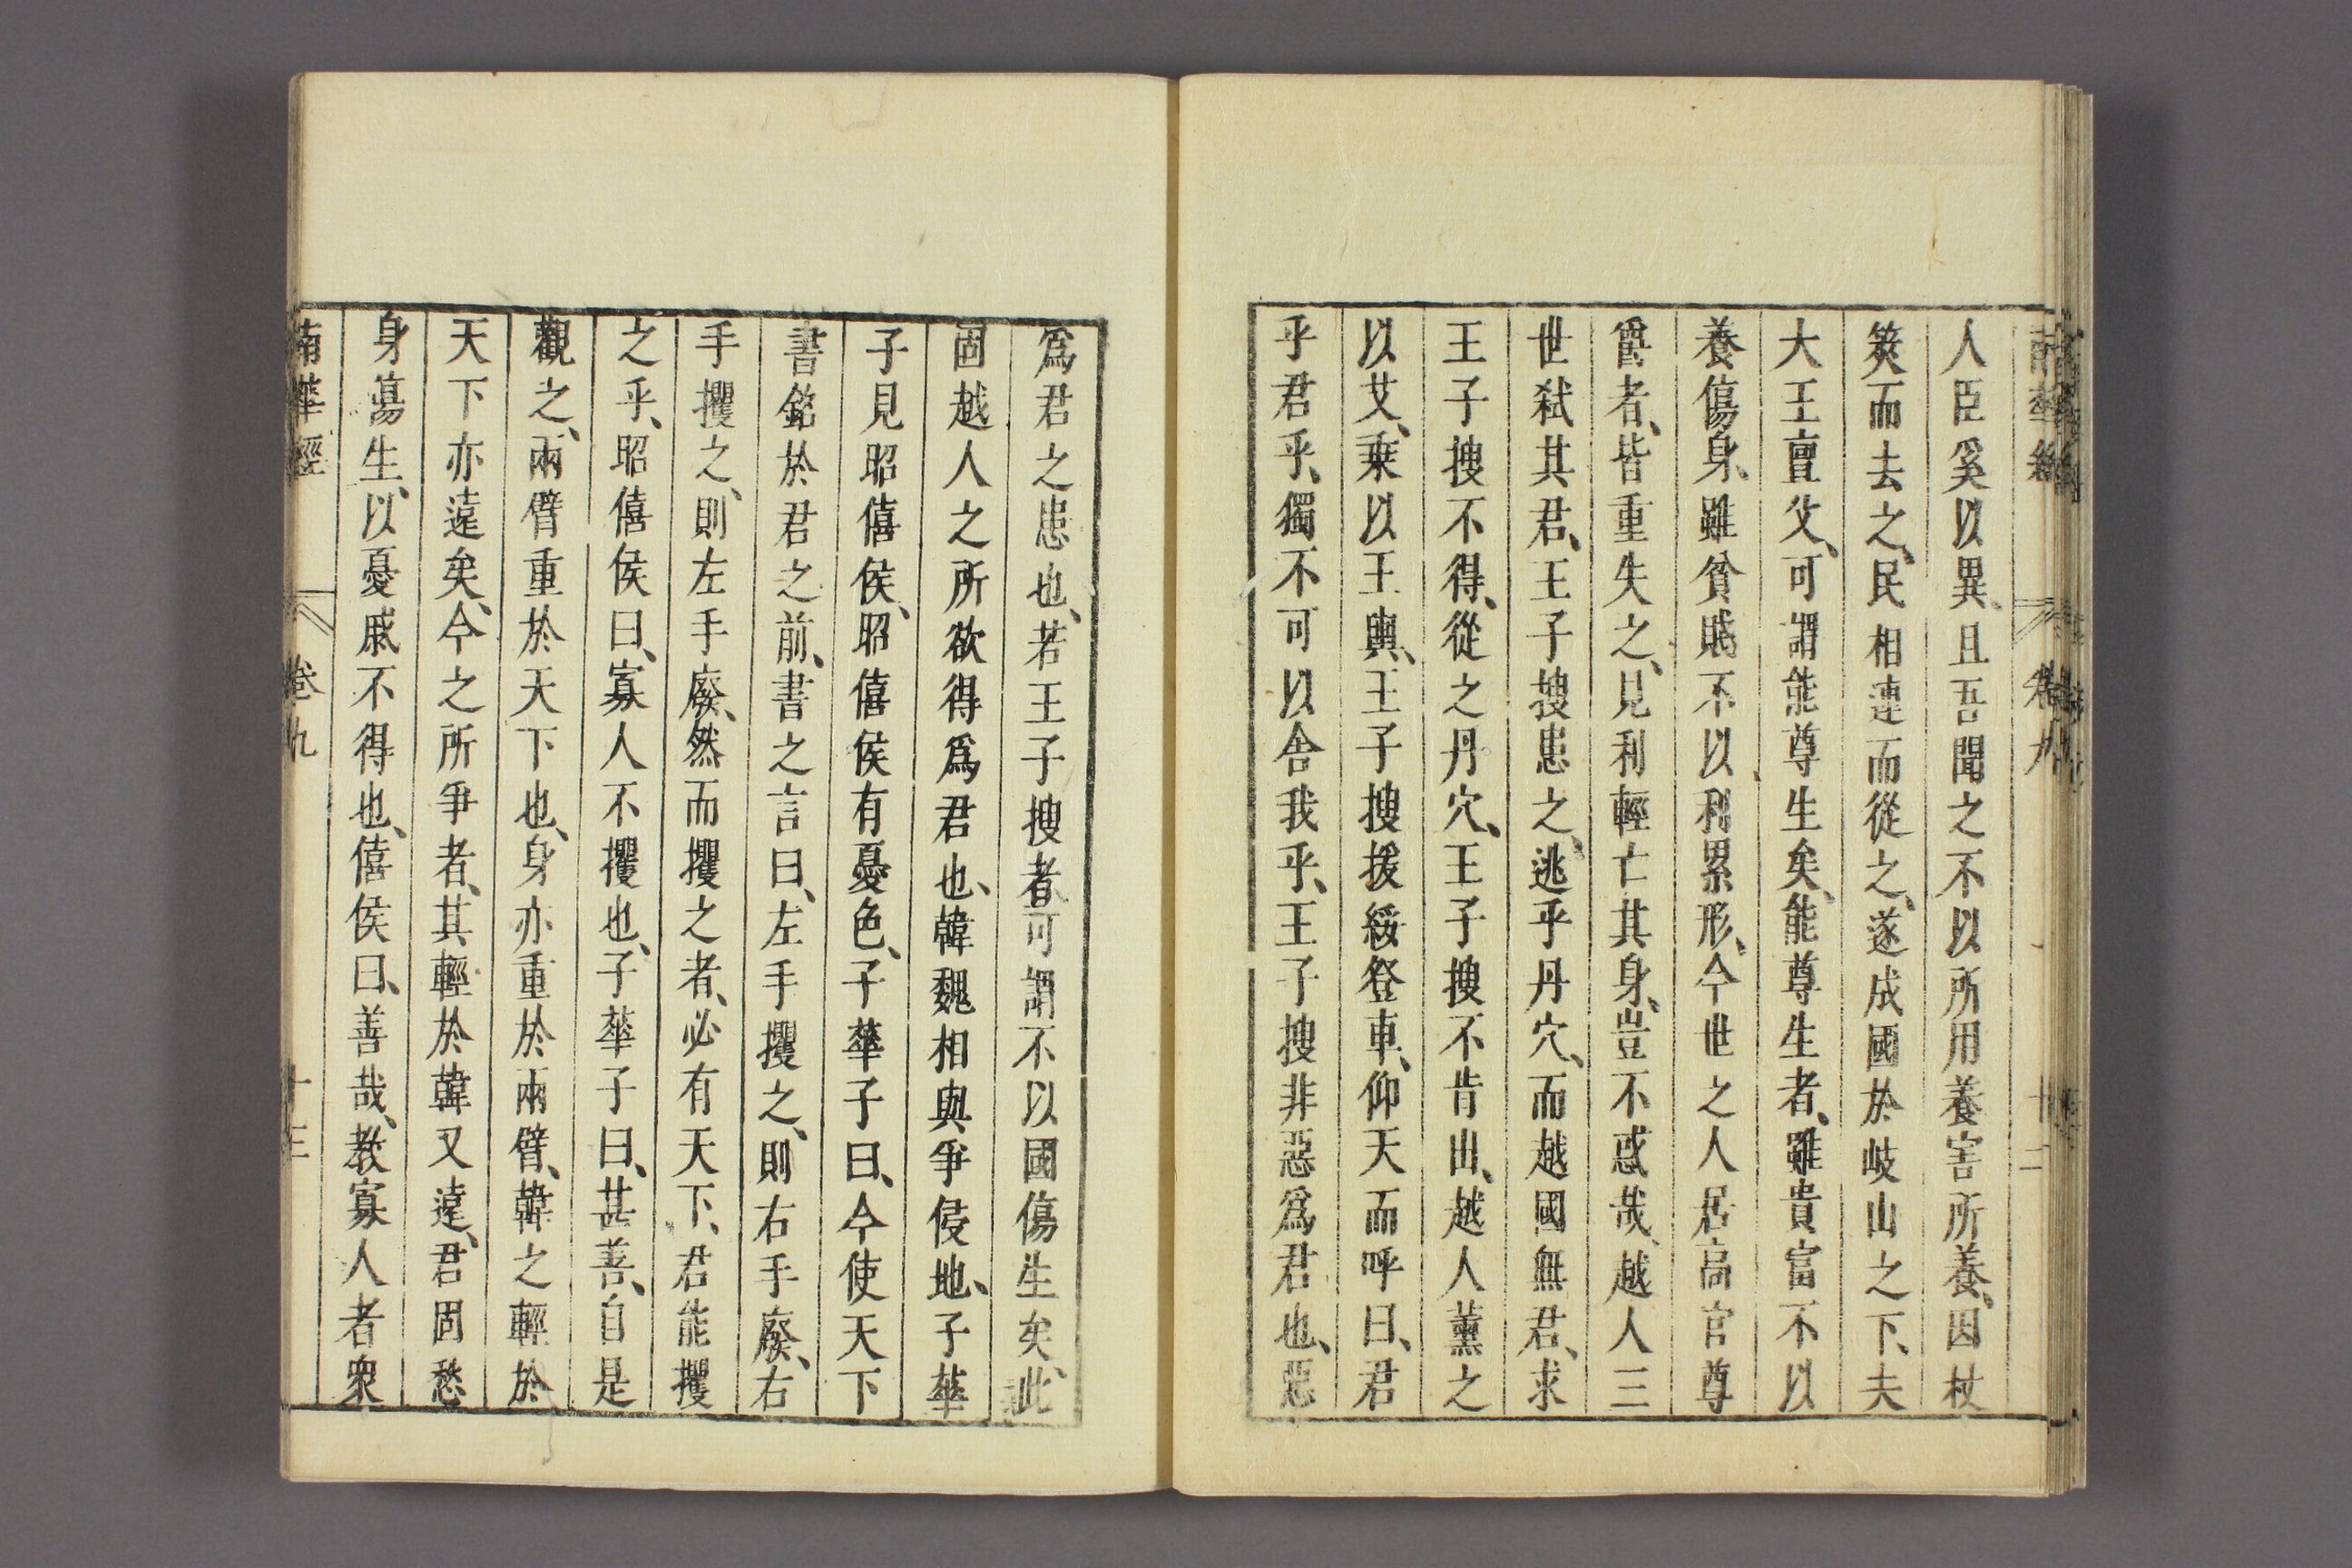 南華經 卷九 十二
人臣奚以異且吾聞之不以所用養害所養、因杖
筴而去之、民相連而從之、遂成國於岐山之下、夫
大王亶父、可謂能尊生矣、能尊生者、雖貴富不以
養傷身、雖貧賤不以利累形、今世之人居高官尊
爵者、皆重失之、見利輕亡其身、豈不惑哉、越人三
世弒其君、王子搜患之、逃乎丹穴、而越國無君、求
王子搜不得、從之丹穴、王子搜不肯出、越人薰之
以艾、乗以王輿、王子搜援綏登車、仰天而呼曰、君
乎君乎、獨不可以舍我乎、王子搜非惡爲君也、惡
爲君之患也、若王子搜者可謂不以國傷生矣、此
固越人之所欲得爲君也、韓魏相與爭侵地、子華
子見昭僖侯、昭僖侯有憂色、子華子曰、今使天下
書銘於君之前、書之言曰、左手攫之、則右手廢、右
手攫之、則左手廢、然而攫之者、必有天下、君能攫
之乎、昭僖侯曰、寡人不攫也、子華子曰、甚善、自是
觀之、兩臂重於天下也、身亦重於兩臂、韓之輕於
天下亦遠矣、今之所爭者、其輕於韓又遠、君固愁
身傷生、以憂戚不得也、僖侯曰、善哉、教寡人者衆
南華經 卷九 十三